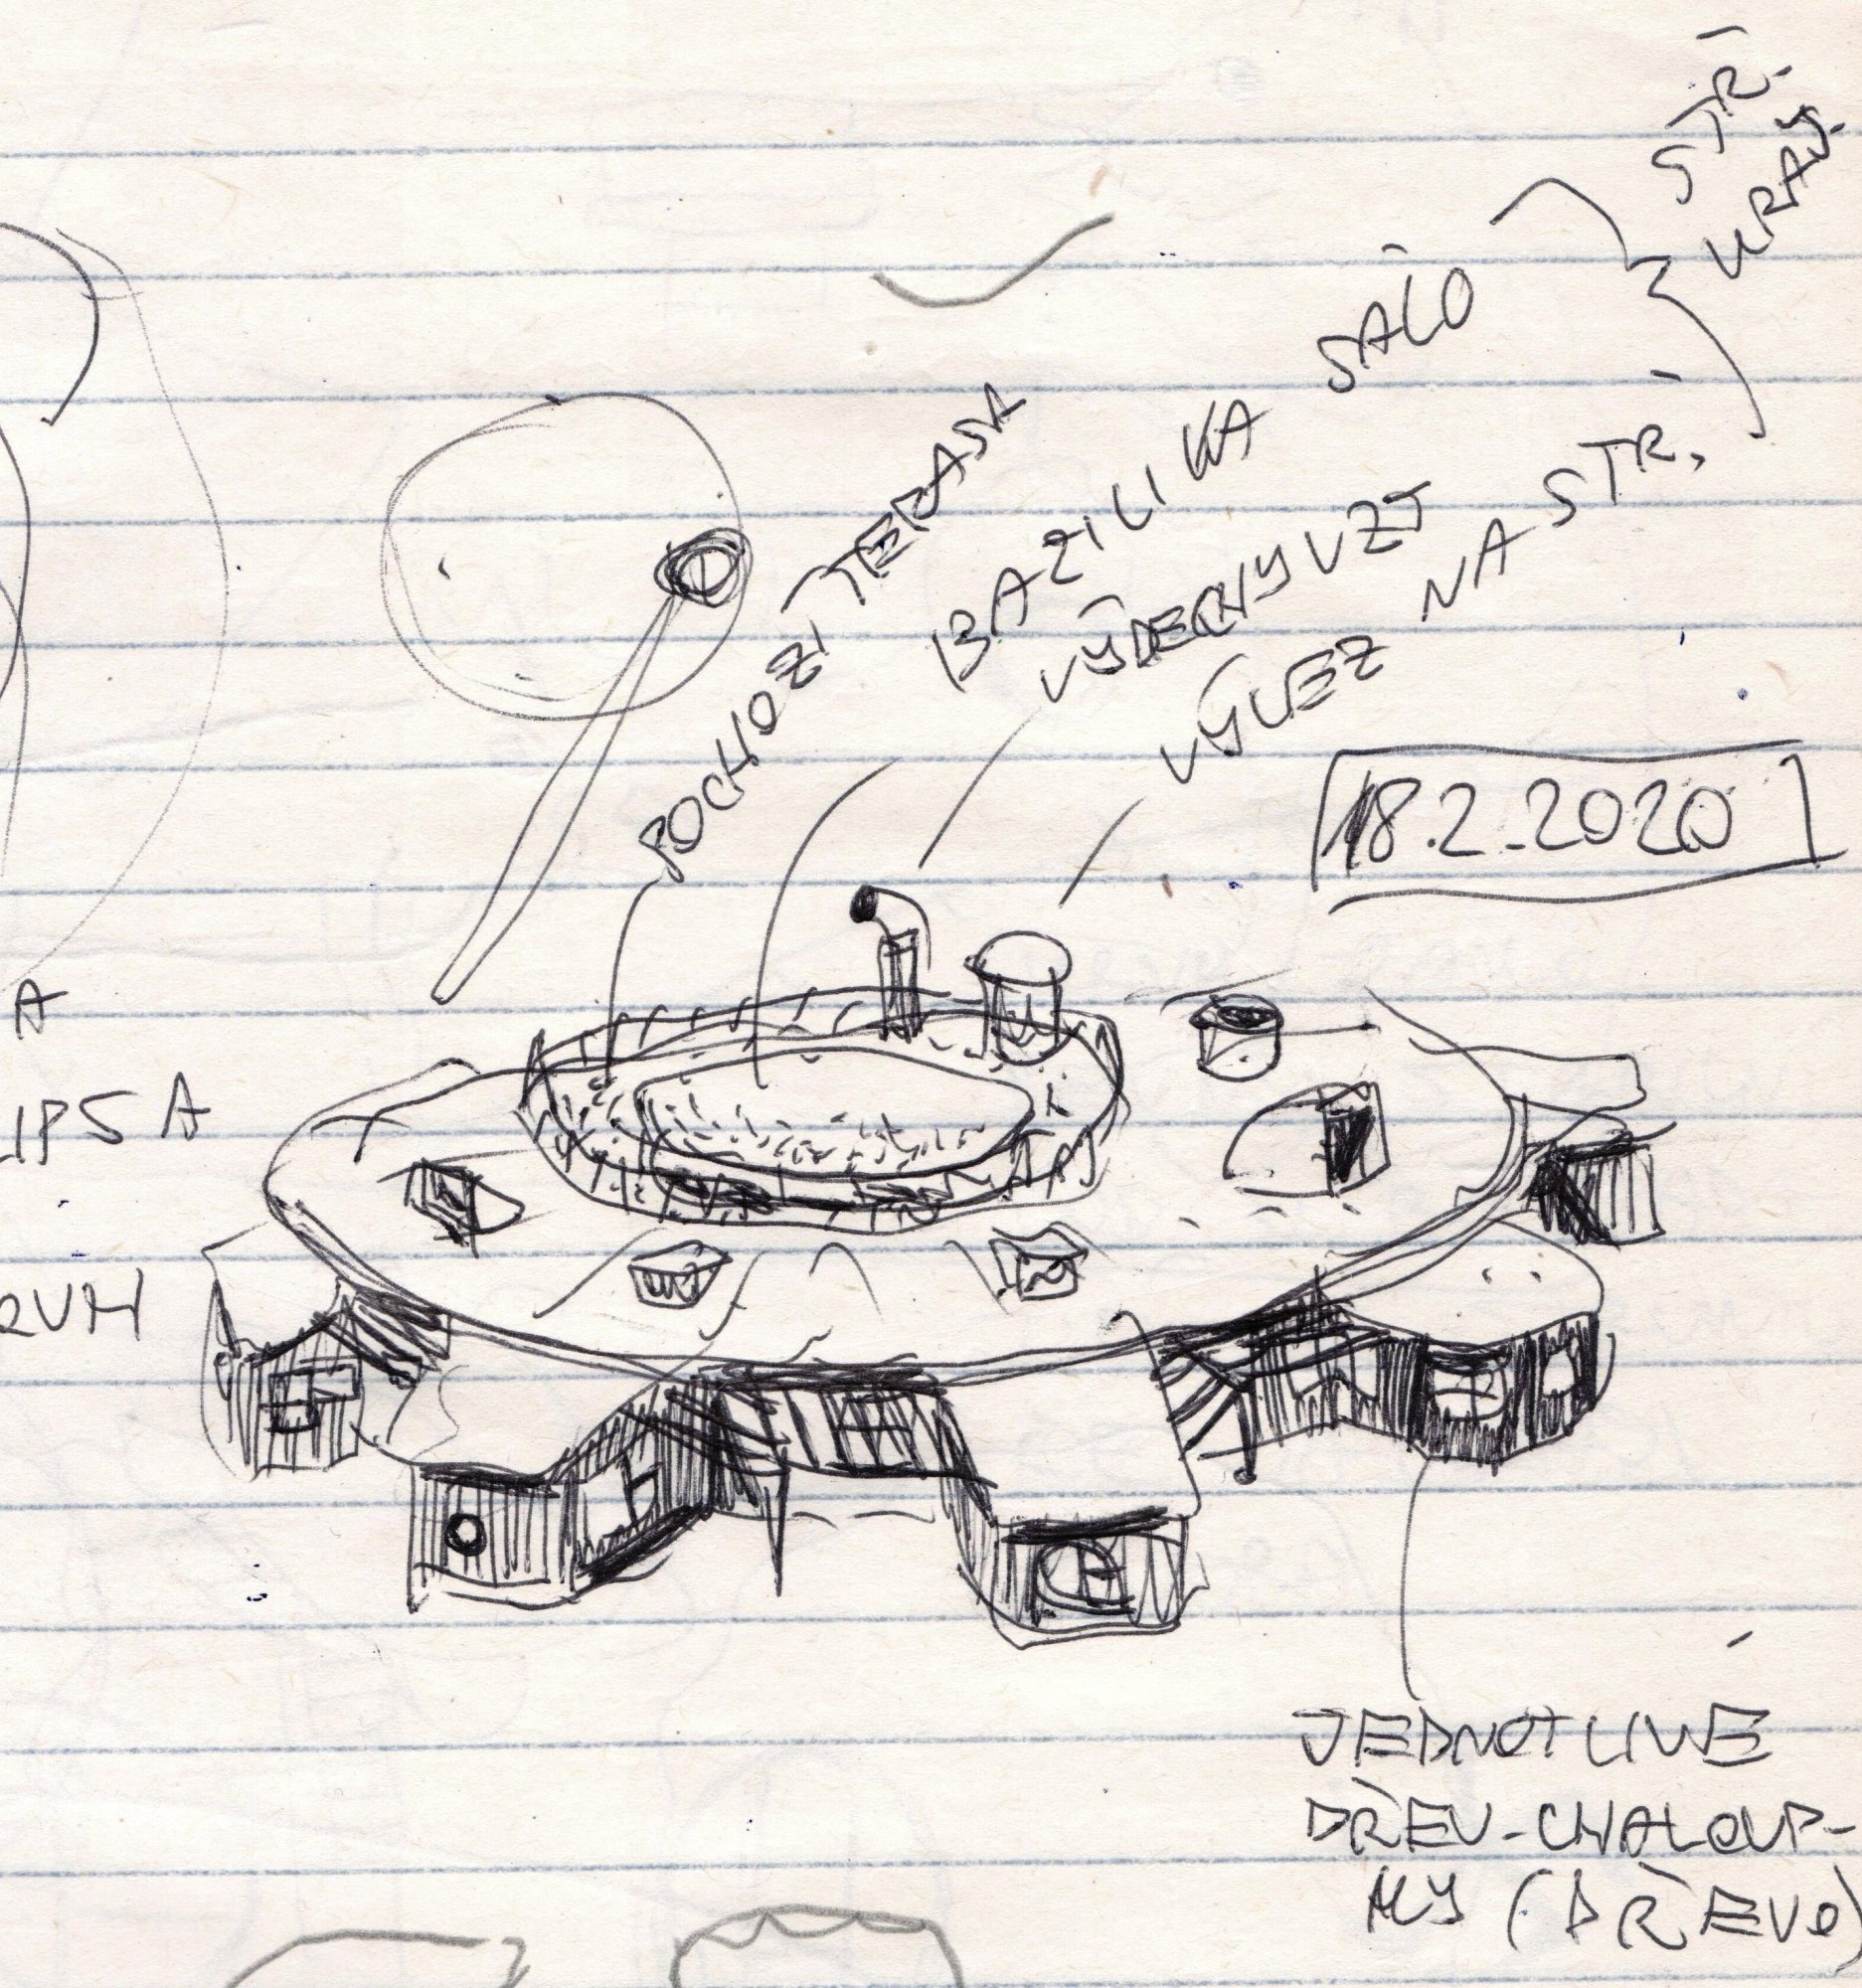 STŘ.
KRAJ.
POCHOZÍ TERASA
BAZILIKA SÁLO
VÝDECHY VZT
VÝLEZ NA STŘ.
18.2.2020
A
LIPSA
JEDNOTLIVÉ
DŘEV-CHALOUP-
KY (DŘEVO)